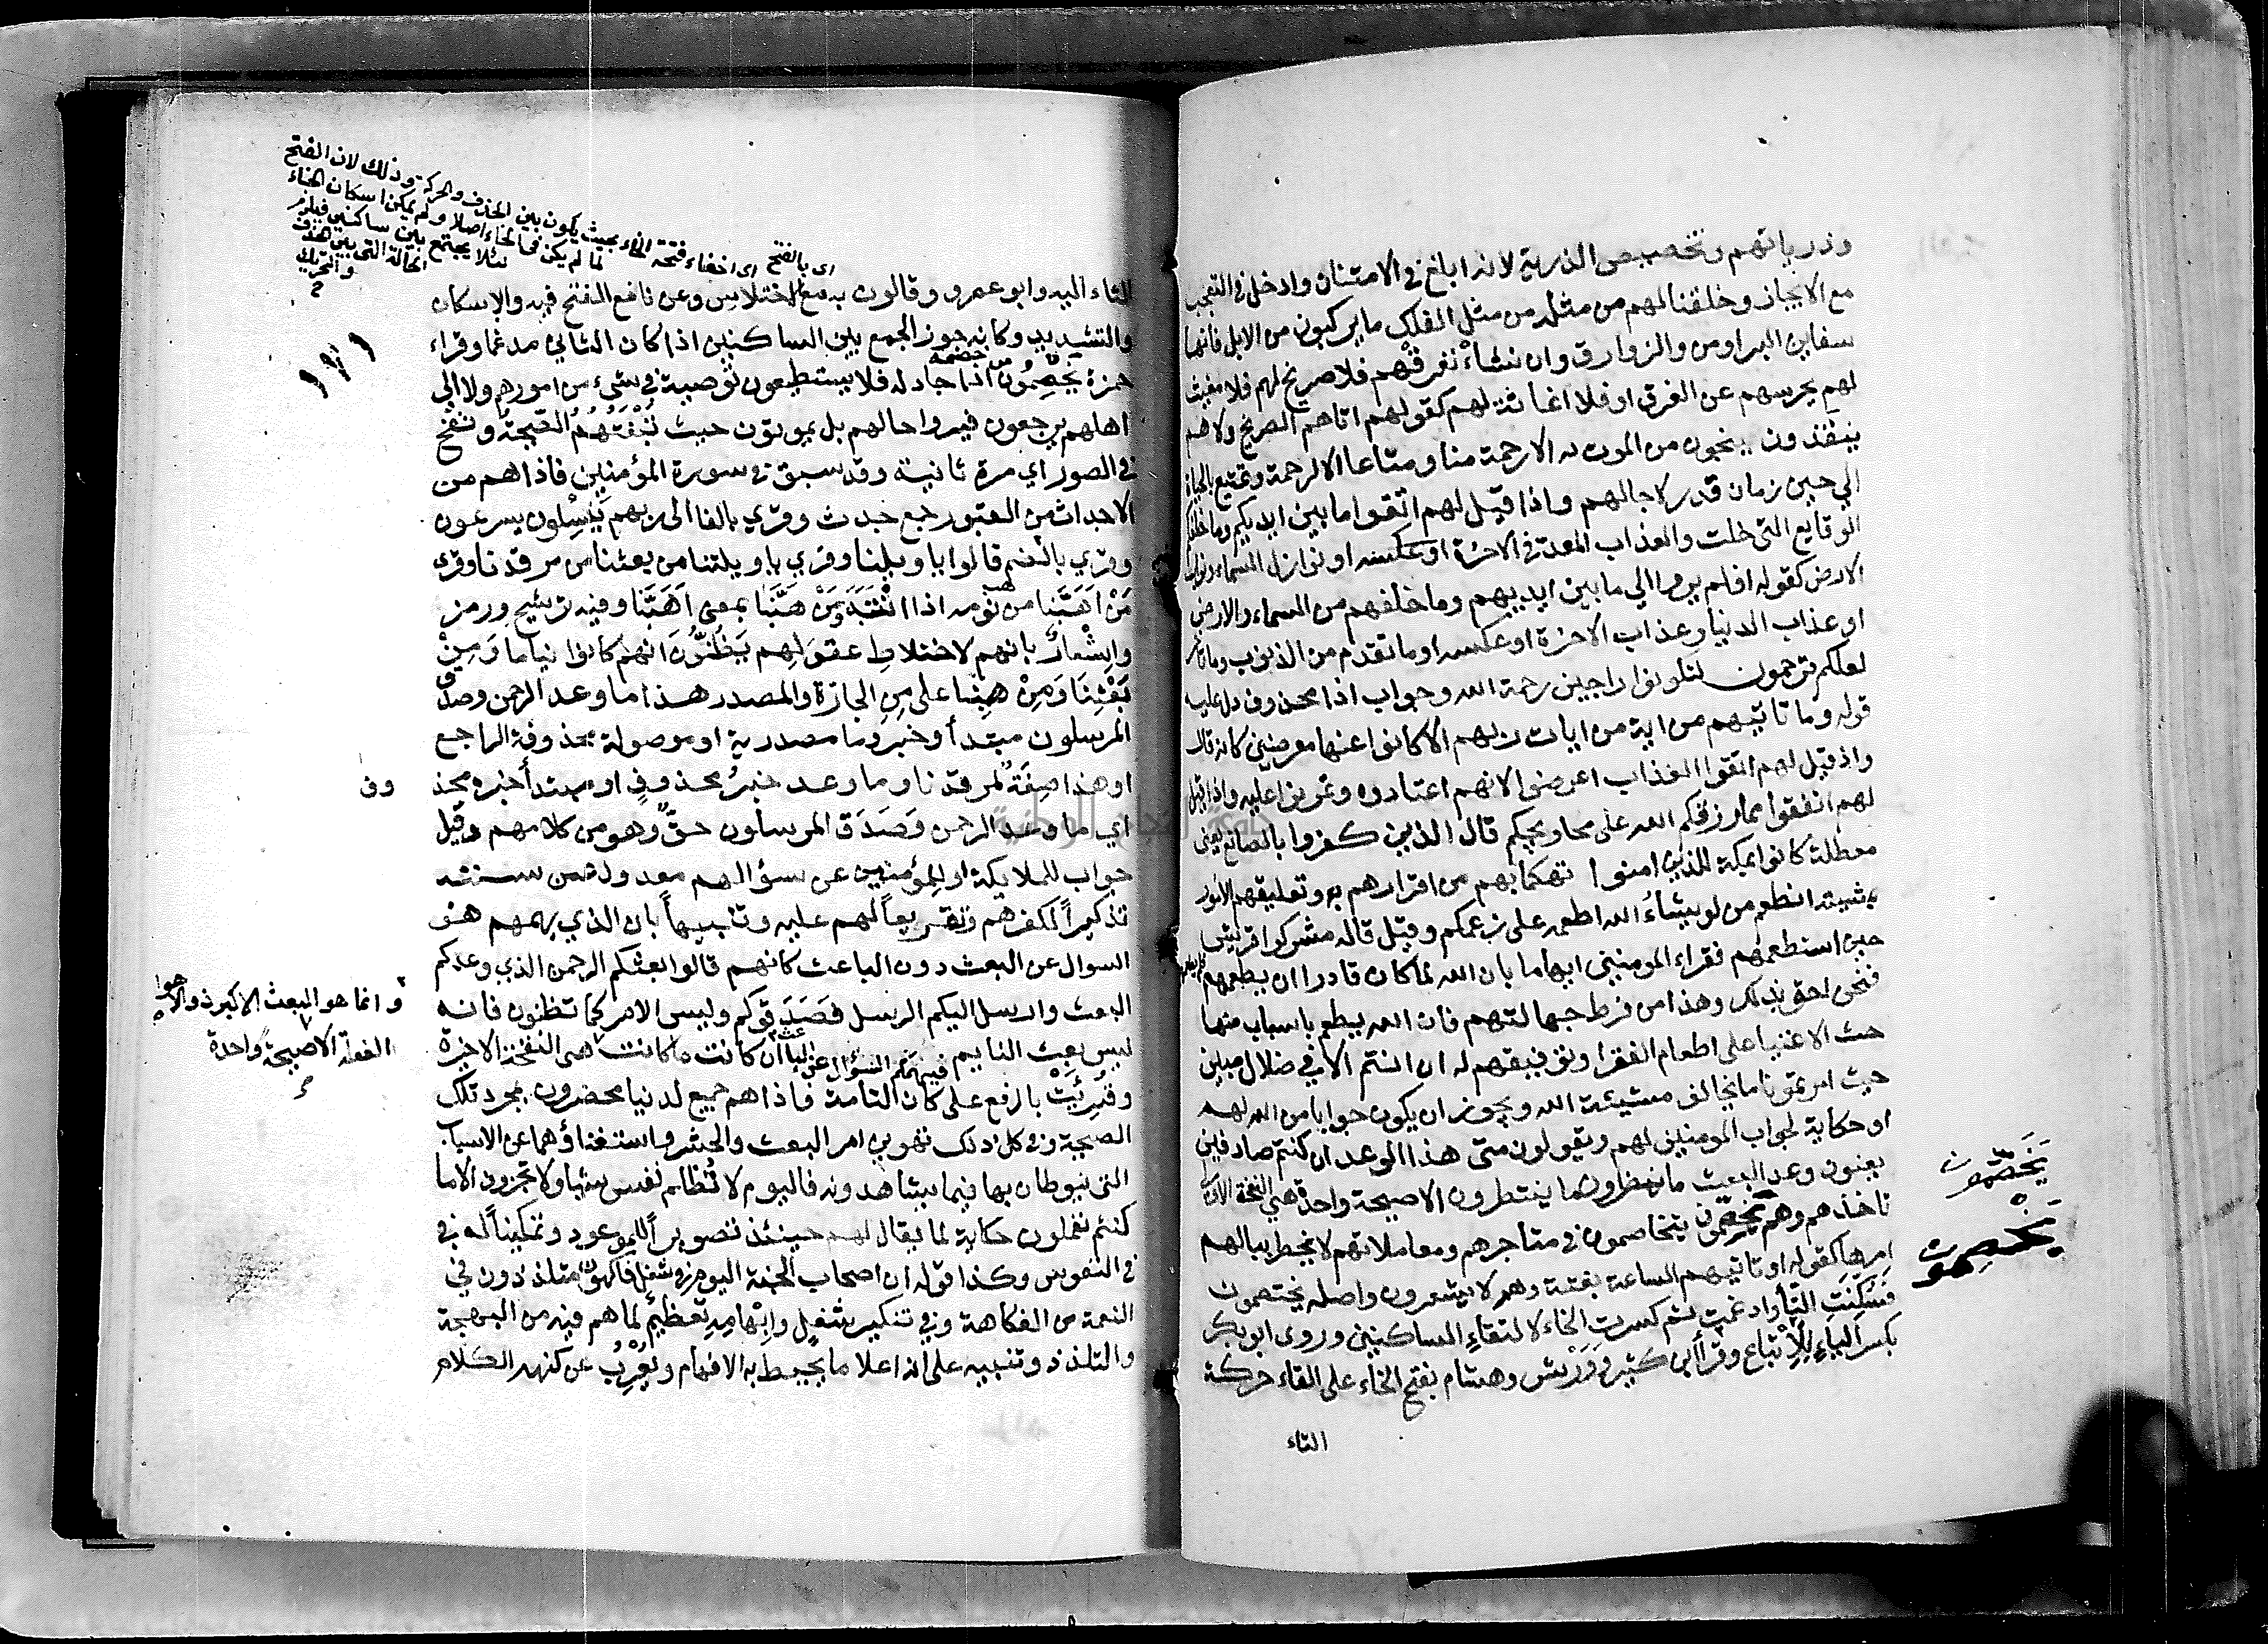 وذرياتهم وتخصيص الذرية لانه ابلغ في الامتنان وادخل في التعجب
مع الايجاز وخلقنا لهم من مثله من مثل الفلك ما يركبون من الابل فانها
سفاين البر او من والزوارق وان نشاء نغرقهم فلا صريخ لهم فلا مغيث
لهم يحرسهم عن الغرق او فلا اغاثة لهم كقولهم اتاهم الصريخ ولا هم
ينقذون ينجون من الموت به الا رحمة منا ومتاعا الا لرحمة وتمتيع بالحياة
الي حين زمان قدر لاجالهم واذا قيل لهم اتقوا ما بين ايديكم وما خلفكم
الوقايع التي خلت والعذاب المعد في الاخرة او عكسه او نوازل السماء ونوايب
الارض كقوله افلم يروا الي ما بين ايديهم وما خلفهم من السماء والارض
او عذاب الدنيا وعذاب الاخرة او عكسه او ما تقدم من الذنوب وما تاخر
لعلكم ترحمون لتكونوا راجين رحمة الله وجواب اذا محذوف دل عليه
قوله وما تاتيهم من اية من ايات ربهم الا كانوا عنها معرضين كانه قال
واذ قيل لهم اتقوا العذاب اعرضوا لانهم اعتادوه وتمرنوا عليه واذا قيل
لهم انفقوا مما رزقكم الله على محاويجكم قال الذين كفروا بالصانع يعني
معطلة كانوا بمكة للذين امنوا تهكما بهم من اقرارهم به وتعليقهم الامور
بمشيته انطعم من لو يشاء الله اطعمه على زعمكم وقيل قاله مشركوا قريش
حين استطعمهم فقراء المومنين ايهاما بان الله لما كان قادرا ان يطعمهم
فنحن احق بذلك وهذا من فرط جهالتهم فان الله يطعم باسباب منها
حث الاغنيا على اطعام الفقرا وتوفيقهم له ان انتم الا في ضلال مبين
حيث امرتمونا ما يخالف مشيئة الله ويجوز ان يكون جوابا من الله لهم
او حكاية لجواب المومنين لهم ويقولون متى هذا الوعد ان كنتم صادقين
يعنون وعد البعث ما ينظرون ما ينتظرون الا صيحة واحدة هي النفخة الاولى
تاخذهم وهم يخصمون يتخاصمون في متاجرهم ومعاملاتهم لا يخطر ببالهم
امرها كقوله او تاتيهم الساعة بغتة وهم لا يشعرون واصله يختصمون
فسكنت التاء وادغمت ثم كسرت الخاء لالتقاء الساكنين وروى ابو بكر
بكسر الياء للاتباع وقرا ابن كثير وورش وهشام بفتح الخاء على القاء حركة
التاء
يخصمون
يخصمون
اى بالفتح اى اخفاء فتحة الخاء بحيث يكون بين الحذف والحركة وذلك لان الفتح
لما لم يكن في الخاء اصلا ولم يمكن اسكان الخاء
لئلا يجتمع بين ساكنين فيلزم
الحالة التي بين الحذف
والتحريك
١٧١
التاء اليه وابو عمرو وقالون به مع الاختلاس وعن نافع الفتح فيه والاسكان
والتشديد وكانه جوز الجمع بين الساكنين اذا كان الثاني مدغما وقراء
حمزة يخصمون من خصمه اذا جادله فلا يستطيعون توصية في شيء من امورهم ولا الي
اهلهم يرجعون فيروا حالهم بل يموتون حيث تبغتهم الصيحة ونفخ
في الصور اي مرة ثانية وقد سبق في سورة المؤمنين فاذا هم من
الاجداث من القبور جمع جدث وقري بالفا الى ربهم ينسلون يسرعون
وقري بالضم قالوا يا ويلنا وقري يا ويلتنا من بعثنا من مرقدنا وقرى
من اهبنا من هب نومه اذا انتبه ومن هبنا بمعنى اهبنا وفيه ترشيح ورمز
واشعار بانهم لاختلاط عقولهم يظنون انهم كانوا نياما ومن
بعثنا ومن هبنا على من الجازة والمصدر هذا ما وعد الرحمن وصدق
المرسلون مبتدأ وخبر وما مصدرية او موصولة محذوفة الراجع
او هذا صفة لمرقدنا وما وعد خبر محذوف او مبتدأ خبره محذ
وف
اي ما وعد الرحمن وصدق المرسلون حق وهو من كلامهم وقيل
جواب للملايكة او للمؤمنين عن سؤالهم معدول عن سننه
تذكيراً لكفرهم وتقريعاً لهم عليه وتنبيهاً بان الذي يهمهم هو
السوال عن البعث دون الباعث كانهم قالوا بعثكم الرحمن الذي وعدكم
البعث وارسل اليكم الرسل فصدقوكم وليس الامر كما تظنون فانه
ليس بعث النايم فيهمكم السؤال عن الباعث ان كانت ما كانت هى النفخة الاخيرة
وانما هو البعث الاكبر ذو الاهوال
الفعلة الا صيحة واحدة
وقرئت بالرفع على كان التامة فاذا هم جميع لدنيا محضرون بمجرد تلك
الصيحة وفي كل ذلك تهوين امر البعث والحشر واستغناؤهما عن الاسباب
التى ينوطان بها فيما يشاهدونه فاليوم لا تظلم نفس شيا ولا تجزون الا ما
كنتم تعملون حكاية لما يقال لهم حينئذ تصويراً للموعود وتمكيناً له في
في النفوس وكذا قوله ان اصحاب الجنة اليوم في شغل فاكهون متلذذون في
النعمة من الفكاهة وفي تنكير شغل وابهامه تعظيم لما هم فيه من البهجة
والتلذذ وتنبيه على انه اعلا ما يحيط به الافهام ويعرب عن كنهه الكلام